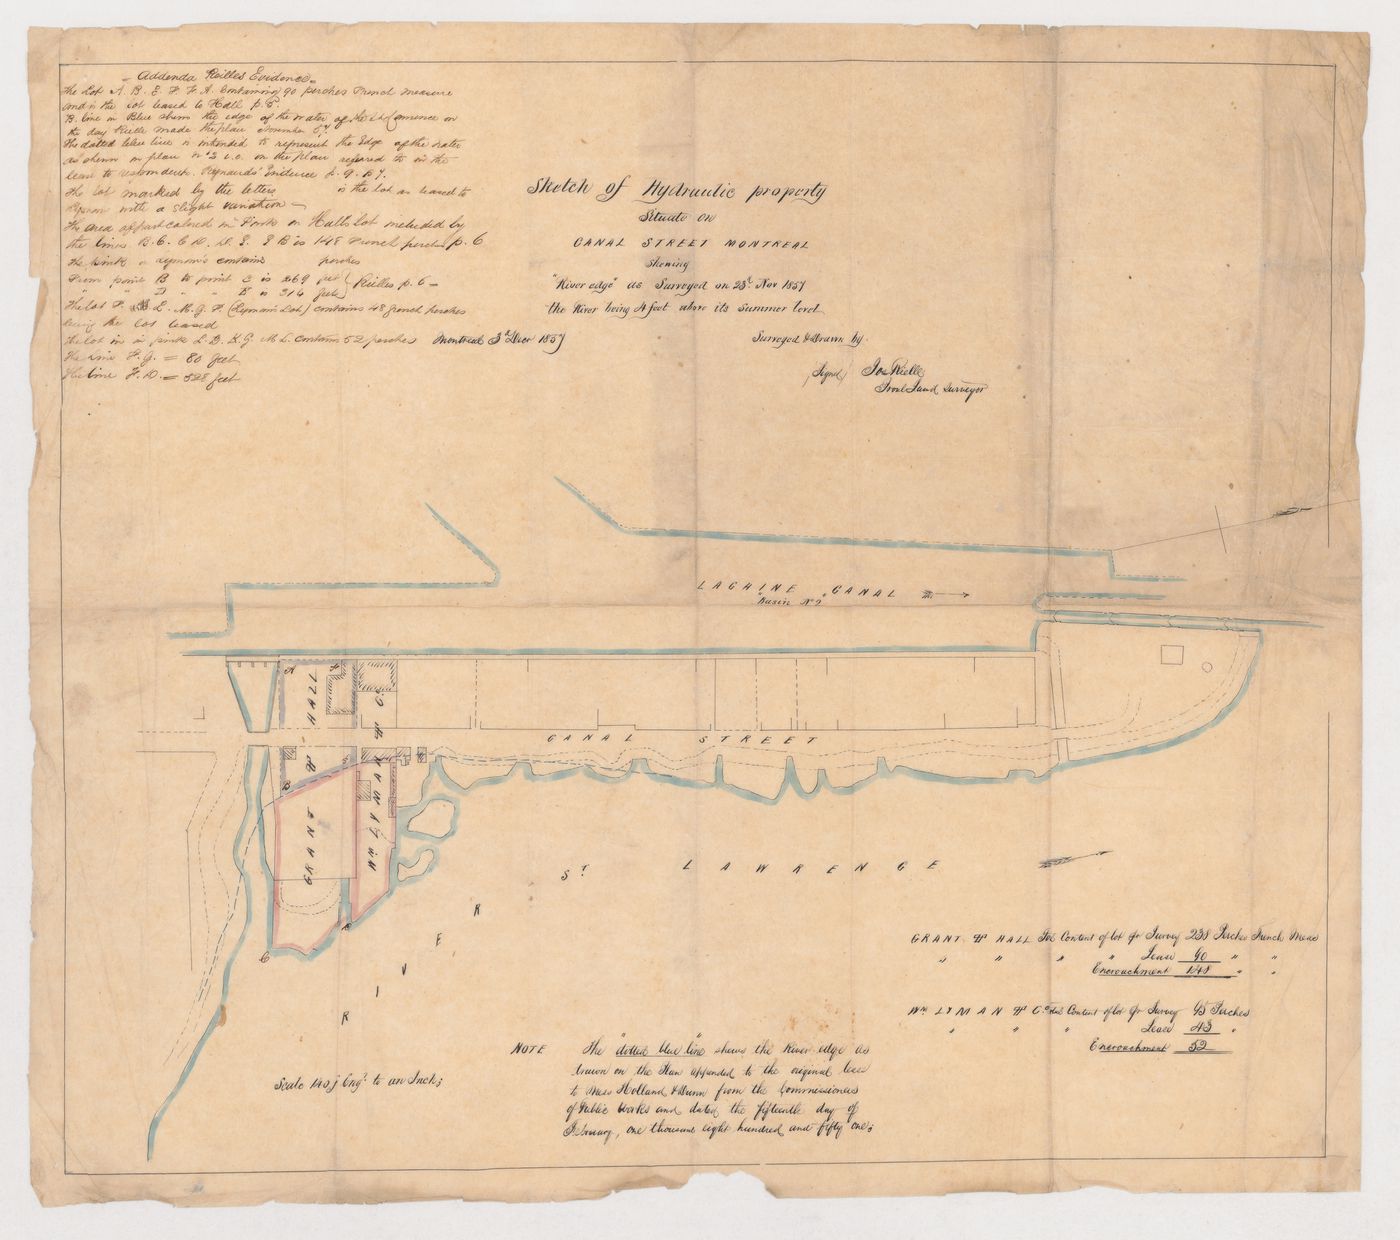 Addenda Rielles Evidence
The Lot A. B. E. F. F. A. Containing 90 perches French measure
and is the Lot leased to Hall p. 5.
B. line in Blue shows the edge of the water of the St Lawrence on
the day Rielle made the plan November 57
The dotted blue line is intended to represent the Edge of the water
as shewn on plan No 2 i.e. on the plan referred to in the
lease to respondent. Reynards' Evidence
The lot marked by the letters is the lot as leased to
Lyman with a slight variation
The area of part colored in Pink on Halls lot included by
the lines B. C. C D. D. E. E B is 148 French perches p. 6
The pink on Lyman's contains perches
From point B to point C is 269 feet } Rielles p. 6
" " D " " E is 314 feet
The lot F. L. M. G. F. (Lymans Lot) contains 43 french perches
being the lot leased
The lot in pink L. D. K. G. M. L. contains 52 perches Montreal 3d Decr 1857
The Line F. G. = 80 feet
The line F. D. = 528 feet
Sketch of Hydraulic property
Situate on
CANAL STREET MONTREAL
Shewing
"River edge" as Surveyed on 23d Nov 1857
the River being 4 feet above its Summer level
Surveyed & Drawn by
(Signed) Jos Rielle
Provl Land Surveyor
LACHINE CANAL
"Basin No 2"
A
F
HALL
&
GRANT
B
E
Co
&
WM LYMAN
CANAL STREET
ST LAWRENCE
RIVER
C
GRANT & HALL Total Content of lot pr Survey 238 Perches French Meas
" " " " Lease 90 " "
Encroachment 148 " "
WM LYMAN & Co Total Content of lot pr Survey 95 Perches
" " " Lease 43 "
Encroachment 52
NOTE The "dotted blue line" shews the River edge as
drawn on the Plan appended to the original lease
to Mess Holland & Dunn from the Commissioners
of Public Works and dated the fifteenth day of
February, one thousand eight hundred and fifty one;
Scale 140 f Engl. to an Inch;